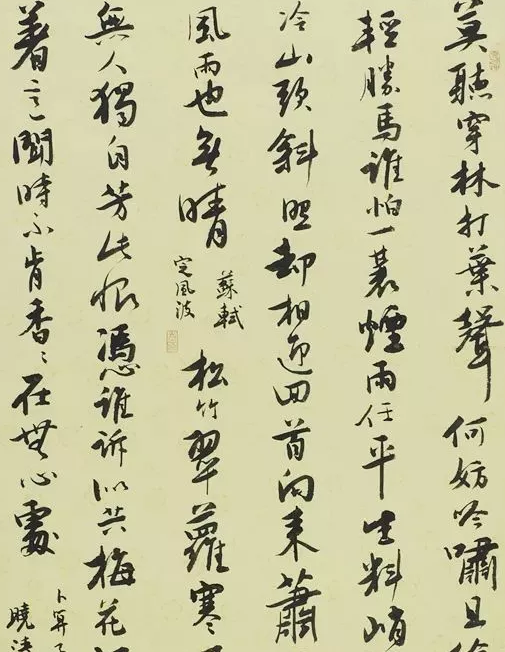 莫聽穿林打葉聲何妨吟嘯且
輕勝馬誰怕一蓑煙雨任平生料峭
冷山頭斜照却相迎回首向来蕭
風雨也無晴
蘇軾
定風波
松竹翠蘿寒
無人獨自芳此恨憑誰訴似共梅花
着意聞時不肯香〻在無心處
卜算子
曉